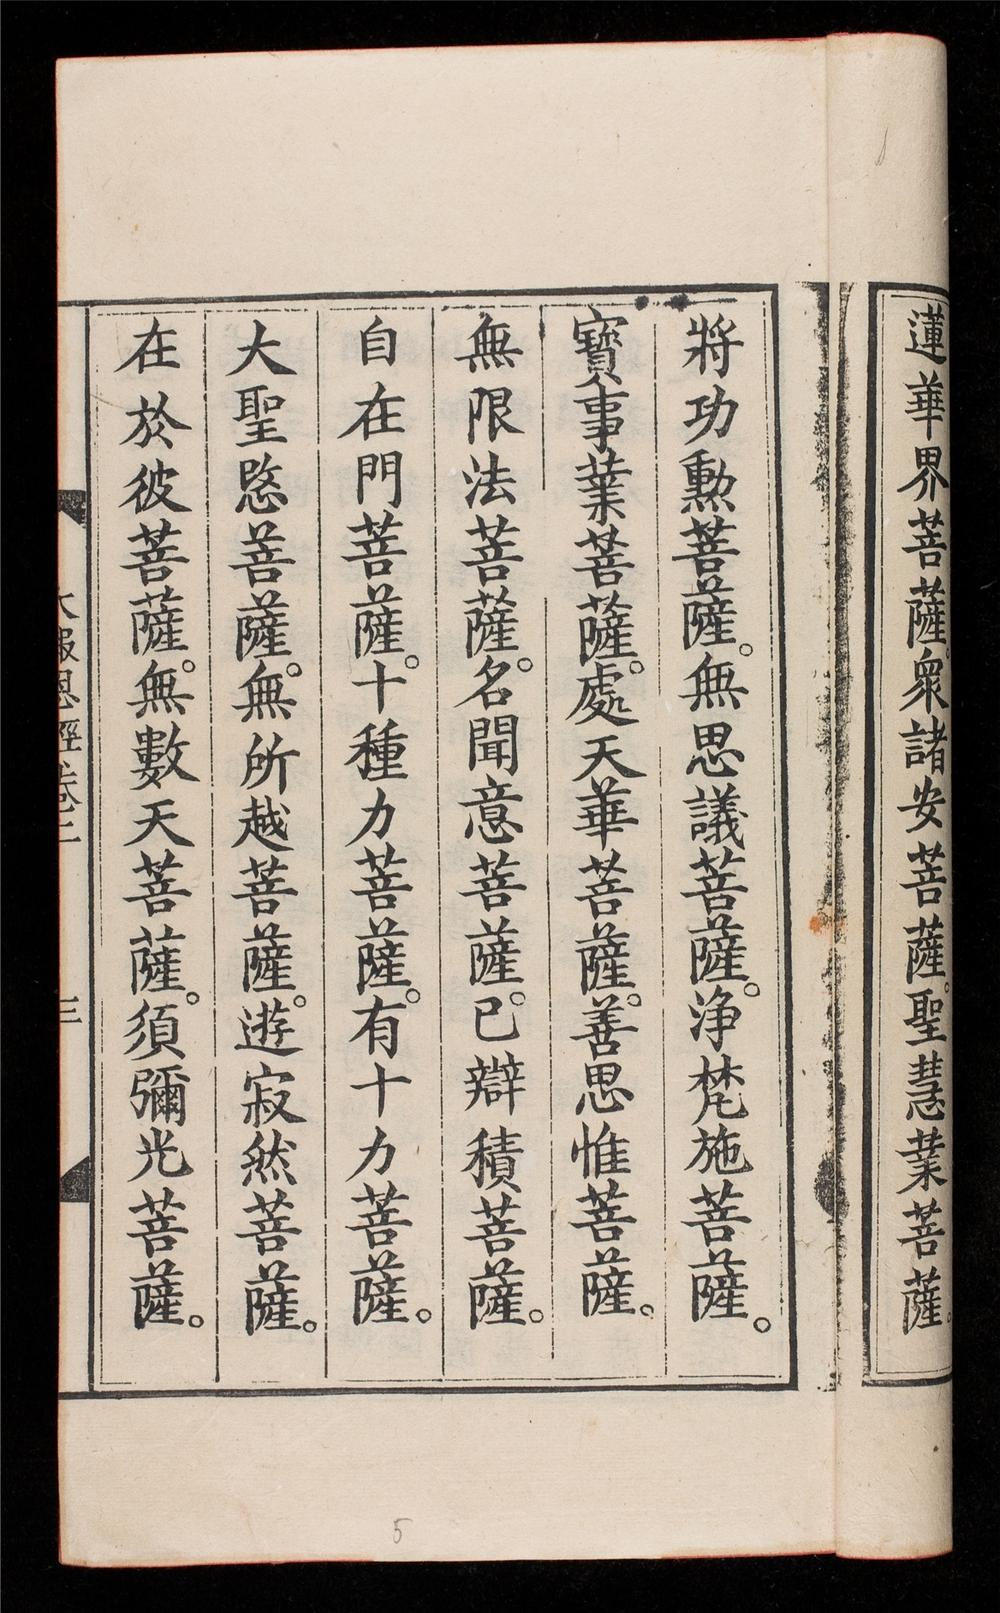 蓮華界菩薩。衆諸安菩薩。聖慧業菩薩。
將功勲菩薩。無思議菩薩。浄梵施菩薩。
寶事業菩薩。處天華菩薩。善思惟菩薩。
無限法菩薩。名聞意菩薩。已辯積菩薩。
自在門菩薩。十種力菩薩。有十力菩薩。
大聖愍菩薩。無所越菩薩。遊寂然菩薩。
在於彼菩薩。無數天菩薩。須彌光菩薩。
大報恩經卷二
三
5